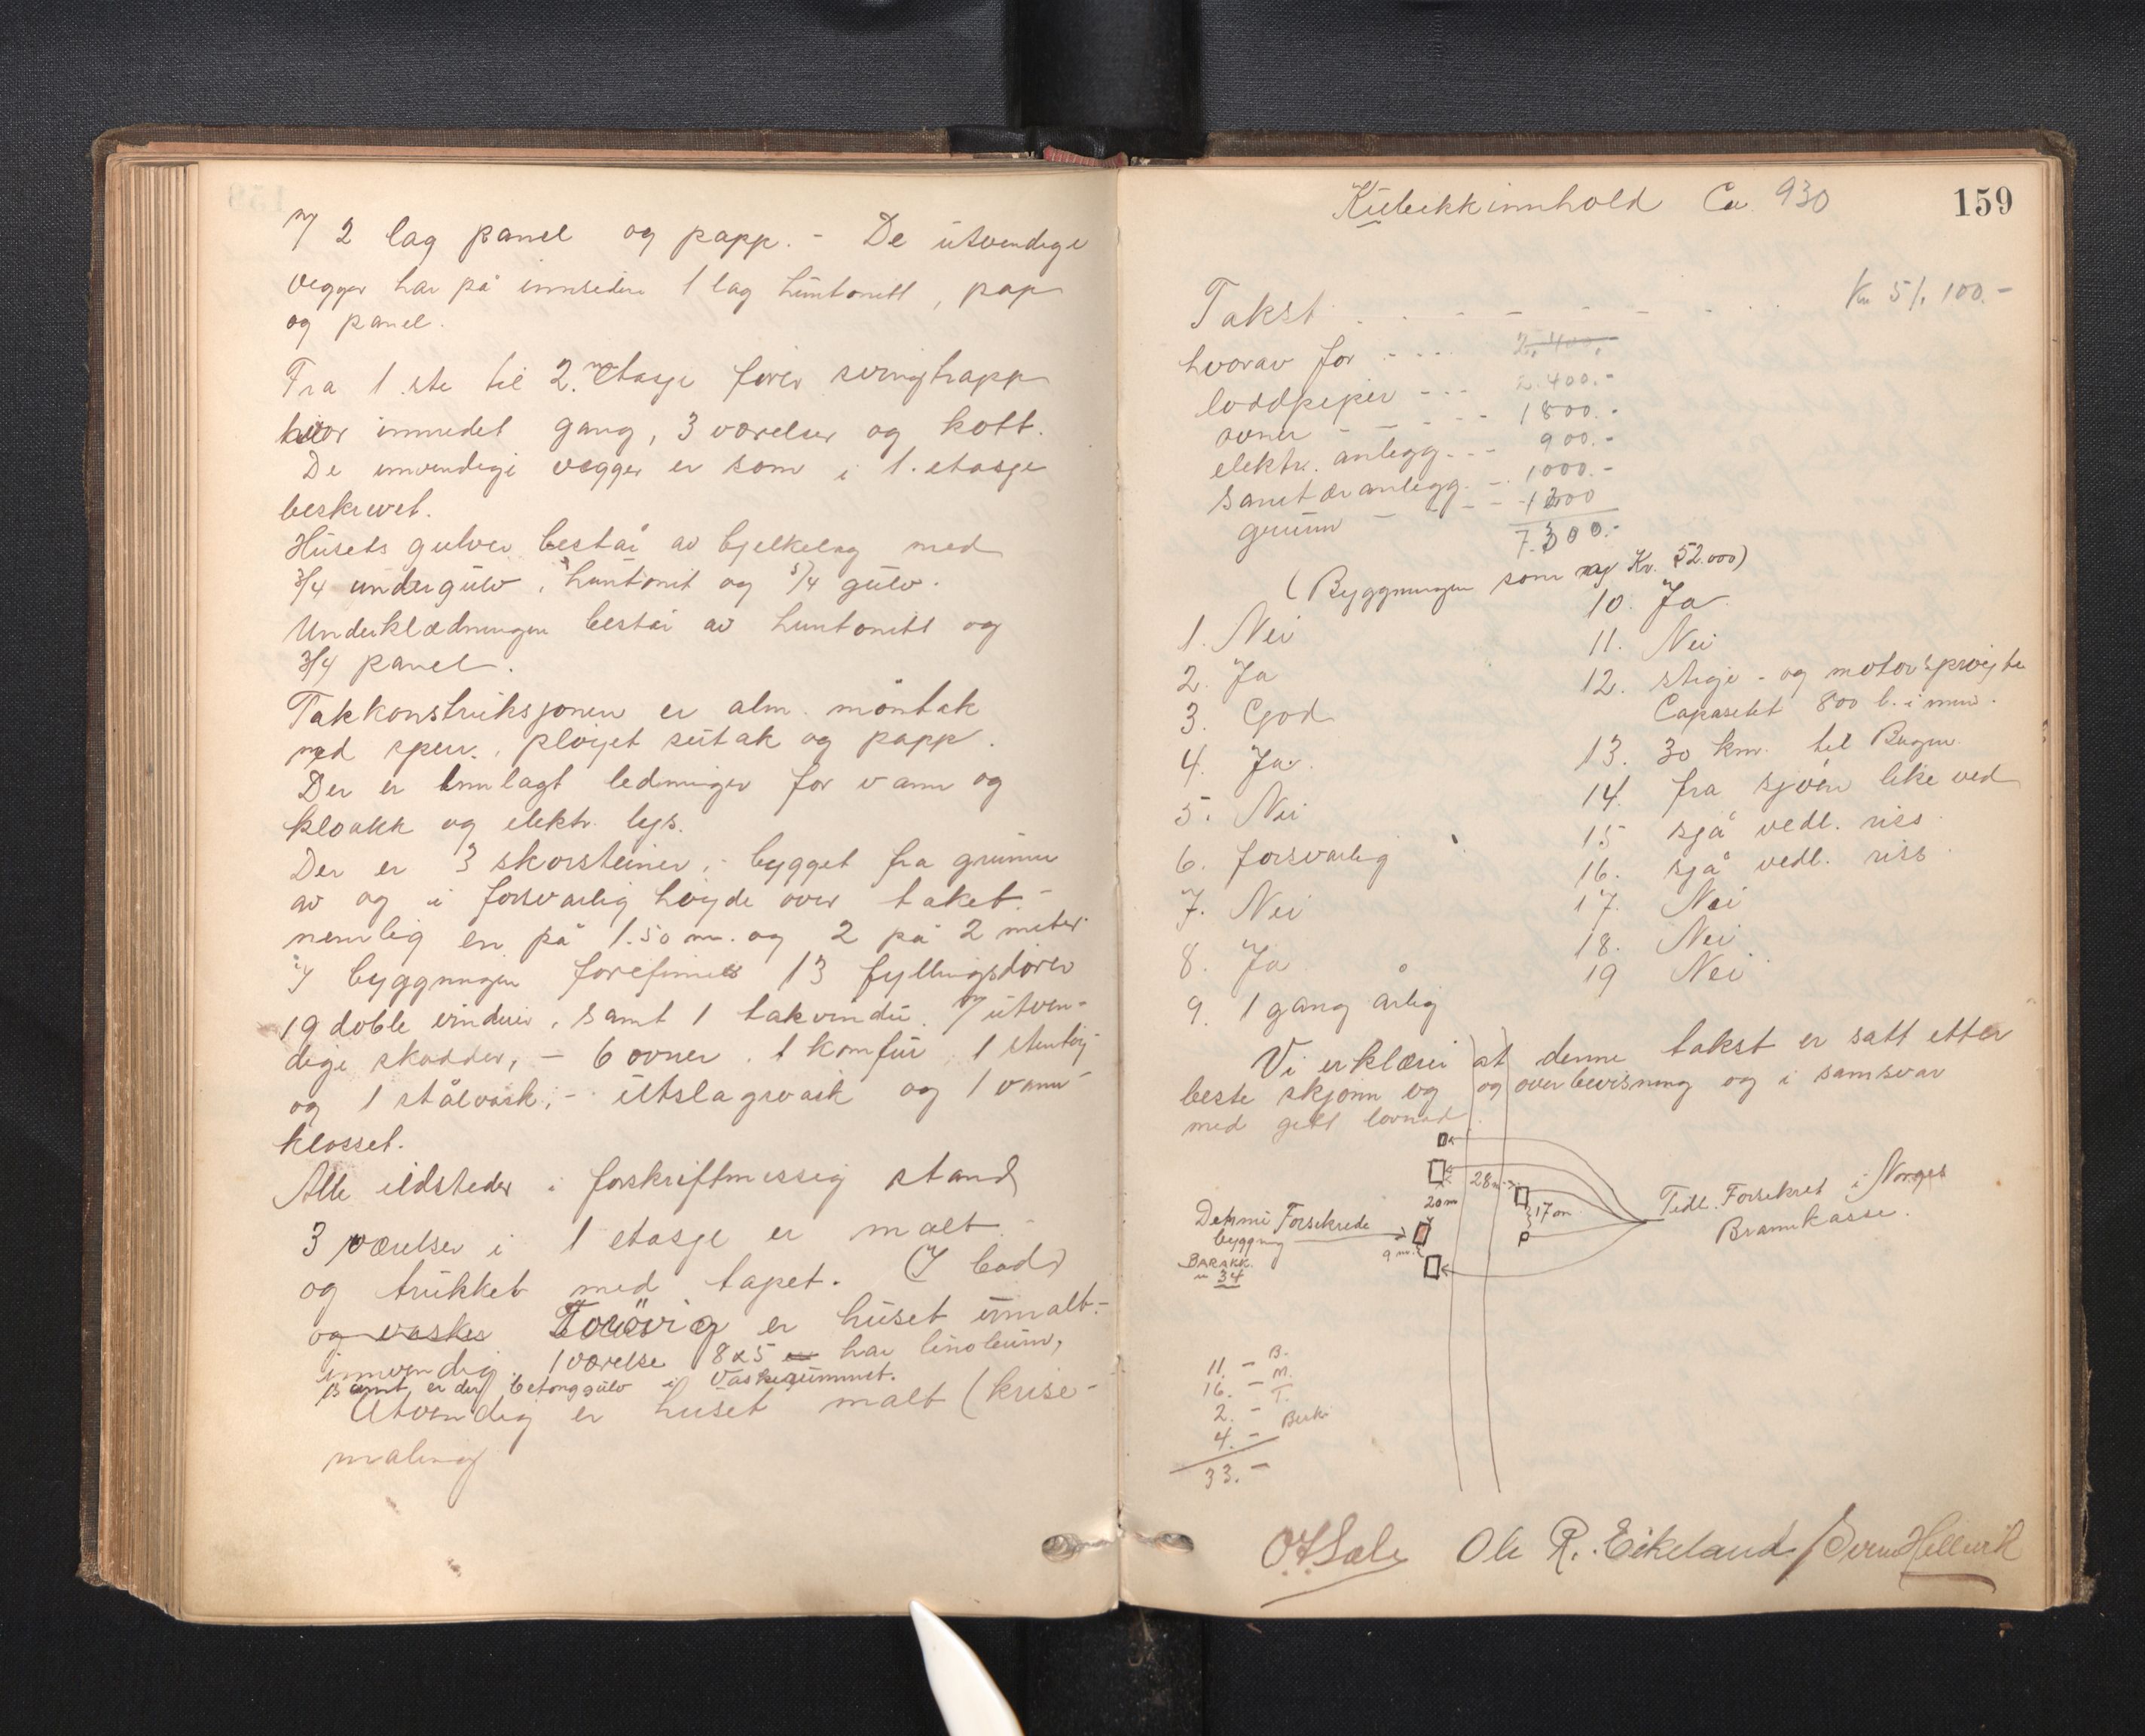 2 lag panel og papp. - De utvendige
vegger har på innsiden 1 lag huntonitt, pap
og panel.
Fra 1 ste til 2. etasje fører svingtrapp
hvor innredet gang, 3 værelser og kott.
De innvendige vegger er som i 1. etasje
beskrevet.
Husets gulver består av bjelkelag med
3/4 undergulv, huntonit og 5/4 gulv.
Underklædningen består av huntonitt og
3/4 panel.
Takkonstruksjonen er alm. møntak
med sperr, pløyet sutak og papp.
Der er innlagt ledninger for vann og
kloakk og elektr. lys.
Der er 3 skorsteiner, bygget fra grunn
av og i forsvarlig høyde over taket -
nemlig en på 1.50 m. og 2 på 2 meter
I byggningen forefinnes 13 fyllingsdører
19 doble vinduer, samt 1 takvindu. 7 utven-
dige skodder, - 6 ovner, 1 komfur, 1
og 1 stålvask, - utslagsvask og 1 vann-
klosset.
Alle ildsteder i forskriftmessig stand
3 værelser i 1 etasje er malt -
og trukket med tapet. (I bad
og vasker er huset umalt -
innvendig. 1 værelse 8x5 har linoleum,
samt er der betonggulv i vaskerummet.
Utvendig er huset malt (krise-
maling
159
Kubikkinnhold Ca 930
Takst . . - - - - - . . Kr 51.100.-
hvorav for - - - 2.400.-
loddpiper - - - 2.400.-
ovner - - - - 1800.-
elektr. anlegg - - - 900.-
Sanitær anlegg. - - 1000.-
grunn - - - - 1200
7.300.-
(Byggningen som ny Kr. 52.000)
1. Nei
2. Ja
3. God
4. Ja.
5. Nei
6. forsvarlig
7. Nei
8. Ja
9. 1 gang årlig
10. Ja
11. Nei
12. stige - og motorsprøyte
Capasitet 800 l. i min.
13. 30 km. til Bergen
14. fra sjøen like ved
15 sjå vedl. riss
16. sjå vedl. riss
17. Nei
18. Nei
19 Nei
Vi erklærer at denne takst er satt etter
beste skjønn og og overbevisning og i samsvar
med gitt lovnad
28 m
20 m
17 m
9 m.
Denne Forsikrede
byggning
BARAKK.
n 34
Tidl. Forsikret i Norges
Brannkasse.
11. - B.
16. - M.
2. - T.
4. -
33. -
Ole R. Eikeland